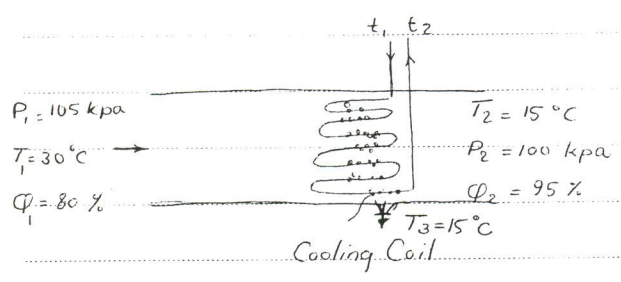 t₁ t₂
P₁ = 105 kpa
T₁ = 30°C
φ₁ = 80 %
T₂ = 15 °C
P₂ = 100 kpa
φ₂ = 95 %
T₃ = 15°C
Cooling Coil